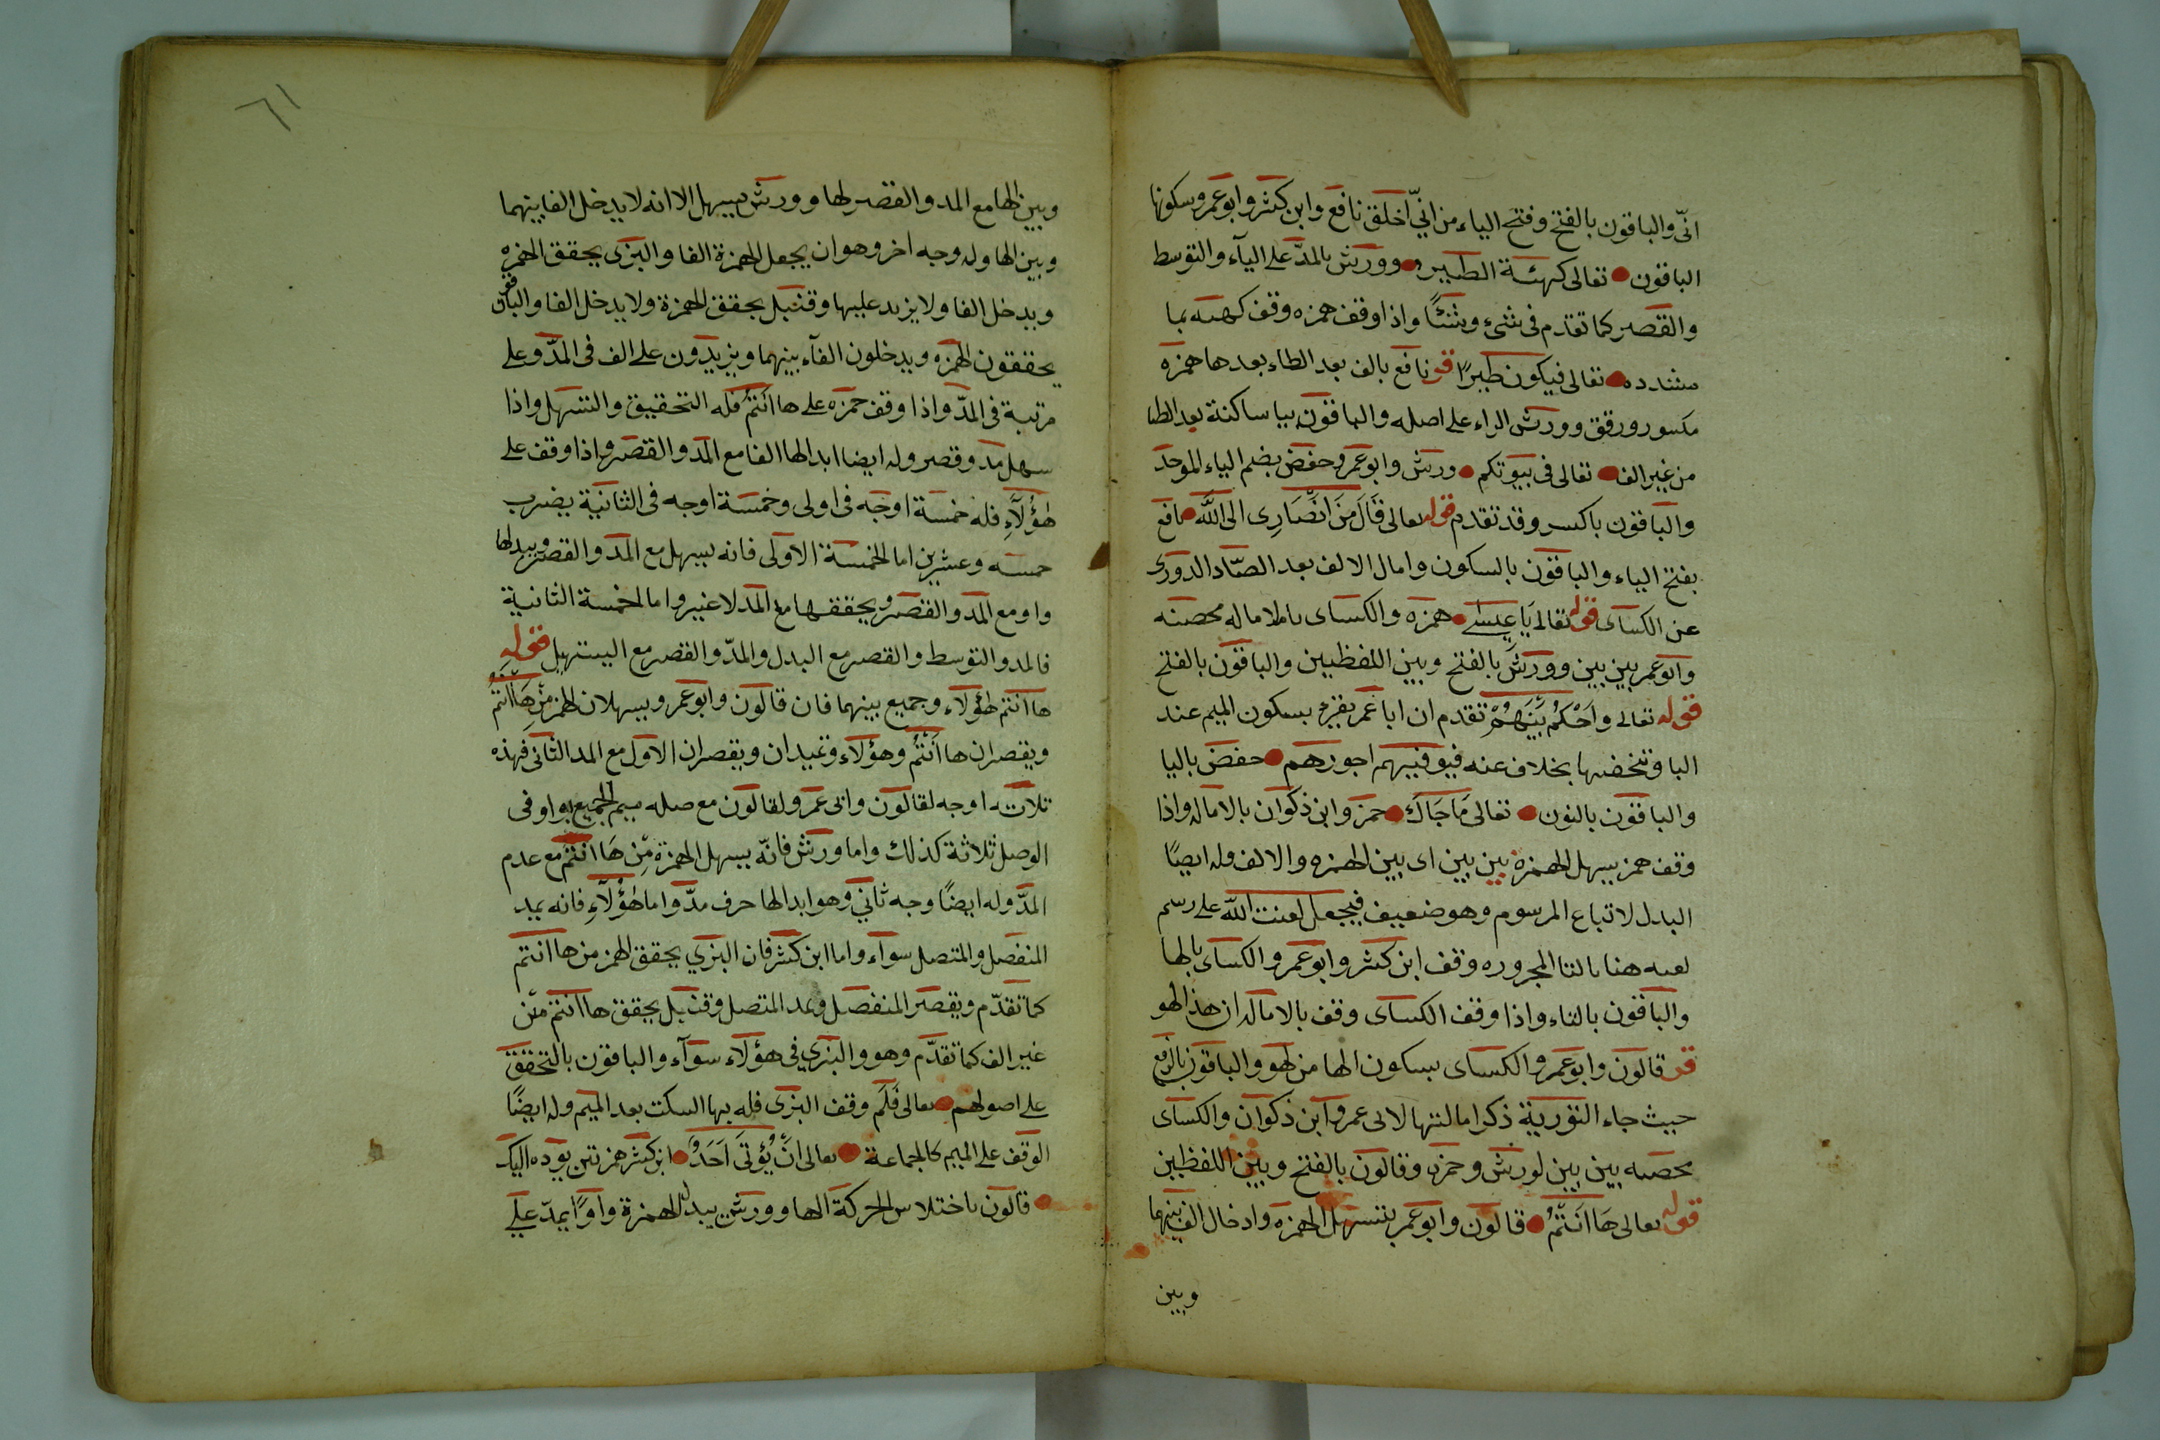 انّى والباقون بالفتح وفتح الياء من انّي اخلق نافع وابن كثر وابو عمر وسكونها
الباقون تعالى كهئة الطير وورش بالمدّ على اليآء والتوسط
والقصر كما تقدم فى شىء وشئًا واذا وقف همزه وقف كهيه بما
مشدده تعالى فيكون طيرًا قو نافع بالف بعد الطاء بعدها همزه
مكسور ورقق وورش الراء على اصله والباقون بيا ساكنة بعد الطا
من غير الف تعالى فى بيوتكم ورش وابو عمر وحفض بضم الياء الموحد
والباقون باكسر وقد تقدم قوله تعالى قَالَ مَنَ انَصَّارِى الى اللَّه نافع
بفتح الياء والباقون بالسكون وامال الالف بعد الصّاد الدورى
عن الكساى قوله تعالى يَا عيسے همزه والكساى باملا ماله محصنه
وابو عمر بين بين وورش بالفتح وبين اللفظيين والباقون بالفتح
قوله تعالى وَاَحْكمُ بَيَنَهُمْ تقدم ان ابا عمر بسكون الميم عند
البا وتخفيها بخلاف عنه فيوفيهم اجورهم حفض باليا
والباقون بالنون تعالى مَا جَاكَ حمز وابن ذكوان بالاماله واذا
وقف همز يسهل الهمزه بين بين اى بين الهمزه والالف وله ايضًا
البدل لاتباع المرسوم وهو ضعيف فيجعل لعنت اللَّه على رسم
لعنه هنا بالتا المجروره وقف ابن كثر وابو عمر والكساى بالها
والباقون بالتاء واذا وقف الكساى وقف بالاماله ان هذا لهو
قو قالون وابو عمر والكساى بسكون الها من لهو والباقون بالرفع
حيث جاء التورية ذكر امالتها لابى عمر وابن ذكوان والكساى
محصنه بين بين لورش وحمزه وقالون بالفتح وبين اللفظين
قوله تعالى هَا اَنَتُّمُ قالون وابو عمر بتسهل الهمزه وادخال الف بينهما
وبين
٦١
وبين الها مع المد والقصر لها وورش ميسهل الا انه لا يدخل الفا بينهما
وبين الها وله وجه اخر وهو ان يجعل الهمزة الفا والبزى يحقق الهمزه
ويدخل الفا ولا يزيد عليها وقنبل يحقق الهمزة ولا يدخل الفا والباقون
يحققون الهمزه ويدخلون الفآء بينهما ويزيدون على الف فى المدّ وعلى
مرتبة فى المدّ واذا وقف حمزه على ها انتم فله التحقيق والتسهل واذا
سهل مد وقصر وله ايضا ابدالها الفا مع المد والقصر واذا وقف على
هؤلآءِ فله خمسة اوجه فى اولى وخمسة اوجه فى الثانية يضرب
خمسه وعشرين اما الخمسة الاولى فانه يسهل مع المد والقصر ويبدلها
واو مع المد والقصر ويحققها مع المد لا غير واما الخمسة الثانية
فالمد والتوسط والقصر مع البدل والمدّ والقصر مع اليستهيل قوله
ها انتم هؤلاء وجميع بينهما فان قالون وابو عمر ويسهلان الهمز مّن هَا انتم
ويقصران ها اَنتُمُ وهؤلاء وتميدان ويقصران الاول مع المد الثانى فهذه
ثلاث اوجه لقالون وابى عمر ولقالون مع صله ميم الجميع بواو فى
الوصل ثلاثة كذلك واما ورش فانّه يسهل الهمزة مّن هَا انتُم مع عدم
المدّ وله ايضًا وجه ثاني وهو ابدالها حرف مدّ واما هؤلآءِ فانه يمد
المنفصل والمتصل سوآء واما ابن كثر فان البزي يحقق الهمز من ها انتم
كما تقدّم ويقصر المنفصل ويمد المتصل وقنبل يحقق ها انتم مّن
غير الف كما تقدّم وهو والبزي فى هؤلاء سوآء والباقون بالتحقق
على اصولهم تعالى فَلَم وقف البزى فله بها السكت بعد الميم وله ايضًا
الوقف على الميم كالجماعة تعالى انَّ يُؤتَى اَحَدٌ ابن كثر همزتين يؤده اليك
قالون باختلاس الحركة الها وورش يبدل الهمزة واوًا يمدّ علے